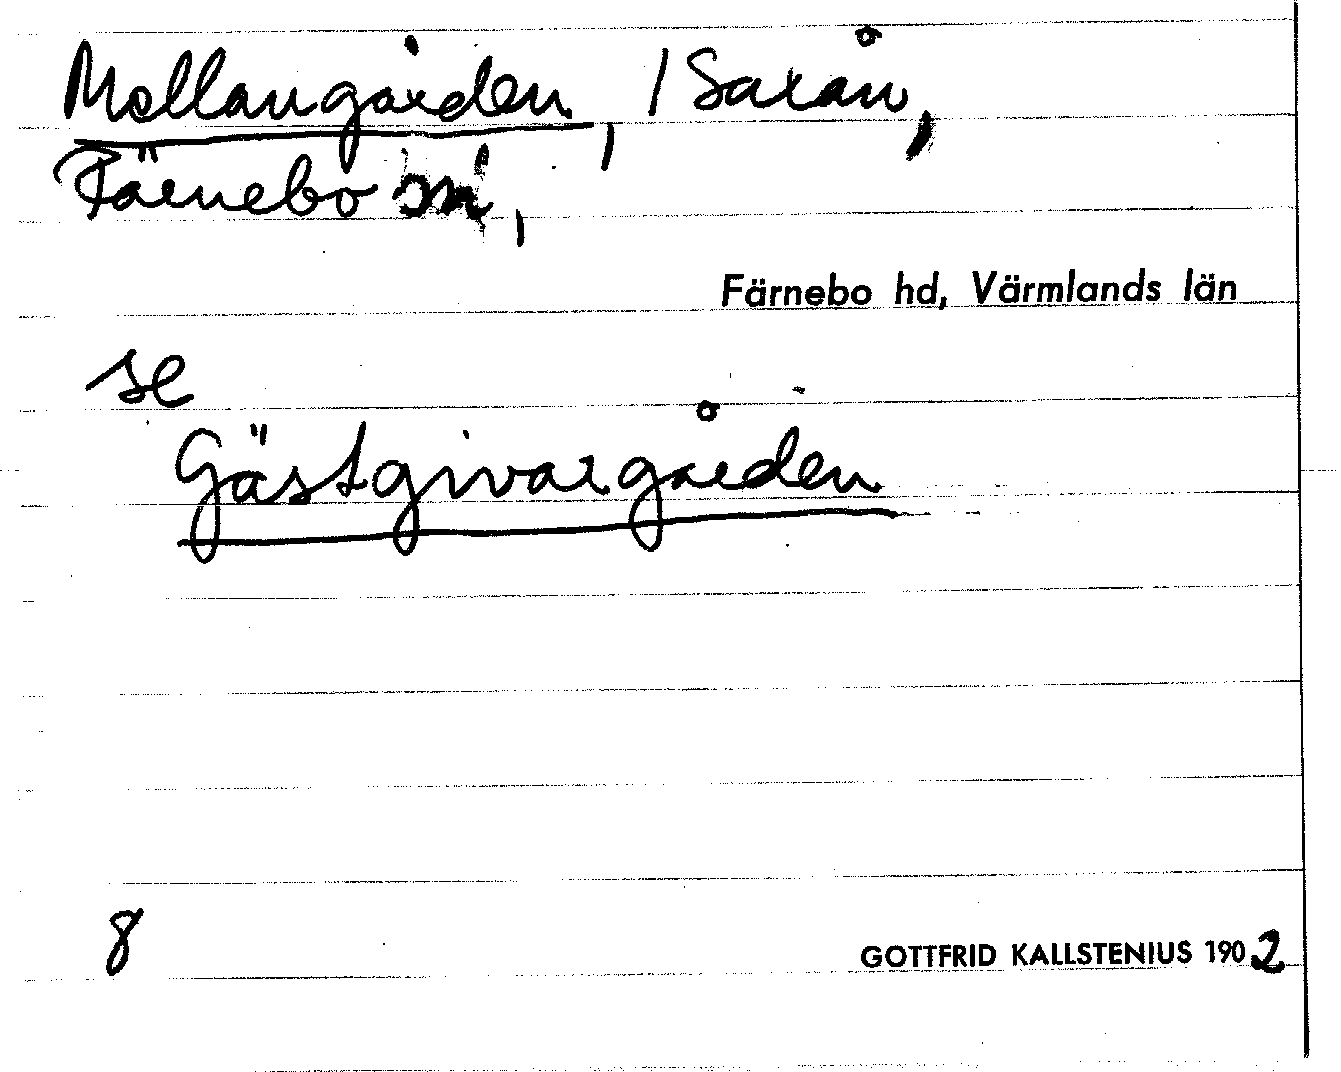 Mellangården, / Saxån,
Färnebo sn,
Färnebo hd, Värmlands län
se
Gästgivargården
8
GOTTFRID KALLSTENIUS 1902